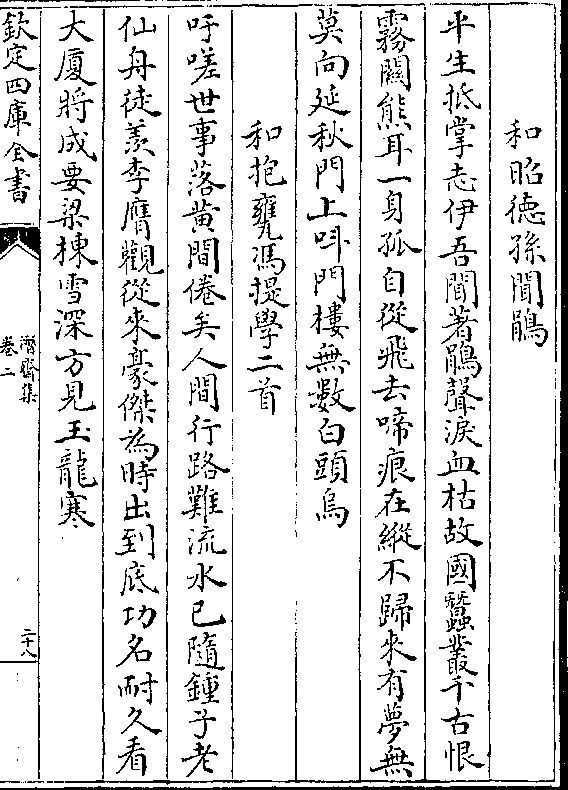 和昭德孫聞鵑
平生抵掌志伊吾聞著鵑聲淚血枯故國蠶叢千古恨
霧關熊耳一身孤自從飛去啼痕在縱不歸來有夢無
莫向延秋門上呌門樓無數白頭烏
和抱甕馮提學二首
吁嗟世事落黄間倦矣人間行路難流水已隨鍾子老
仙舟徒羨李膺觀從來豪傑為時出到底功名耐久看
大厦將成要梁棟雪深方見玉龍寒
欽定四庫全書
潛齋集
卷二
二十八